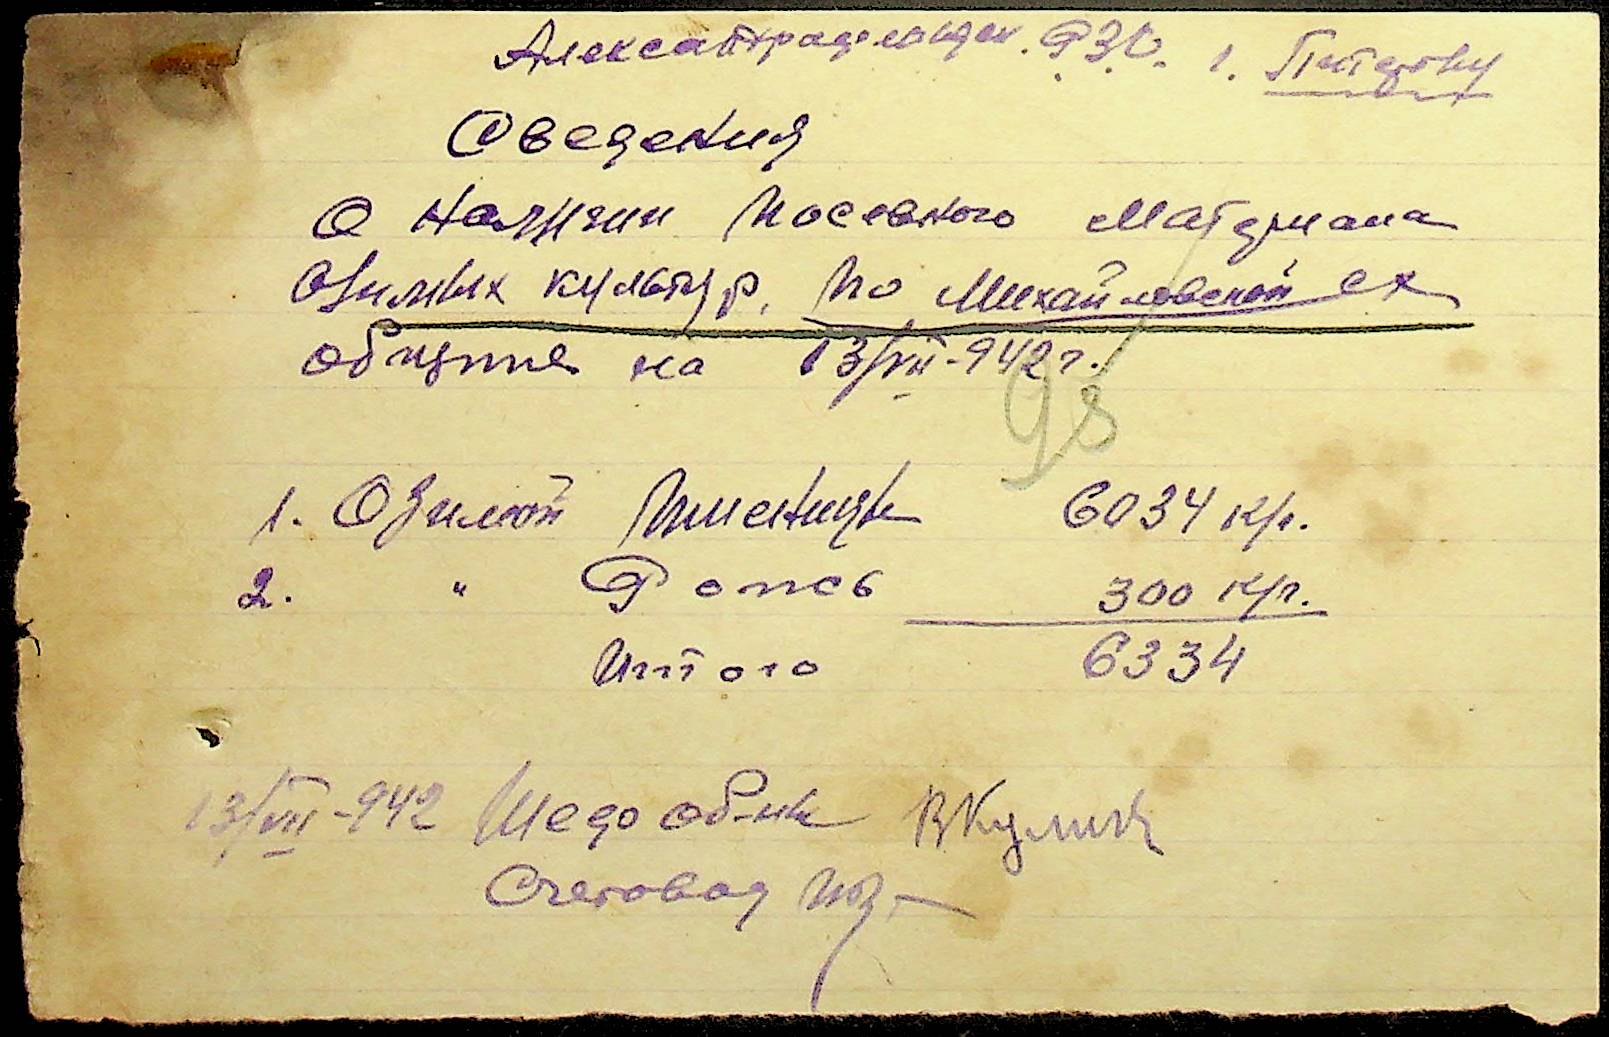 Александрфельдск. РЗО. г. Питерову
Сведения
О наличии посевного материала
Озимых культур. по Михайловской сх
общине на 13/VIII-942 г.
98
1. Озимой пшеницы 6034 кг.
2. " Рапсь 300 кг.
Итого 6334
13/VIII-942 Шедо общ-ны ВКулик
Счетовод